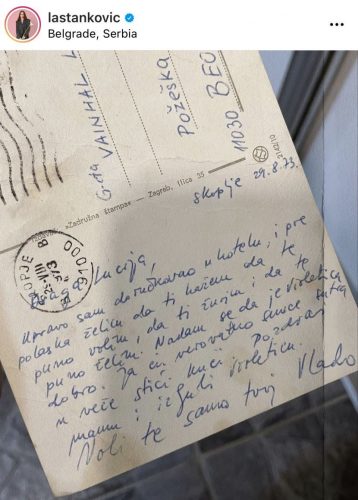 lastankovic
Belgrade, Serbia
G-đa VAINHAL L
Požeška
11030 BEO
"Zadružna štampa" — Zagreb, Ilica 35
Skoplje 29.8.73.
SKOPJE
91000
Lucija,
Upravo sam doručkovao u hotelu, i pre
polaska želim da ti kažem da te
puno volim, da ti i da te
puno želim. Nadam se da je violetica
dobro. Ja ću verovatno sutra
u veče stići kući. Pozdravi
mamu i izljubi violeticu.
Voli te samo tvoj Vlado